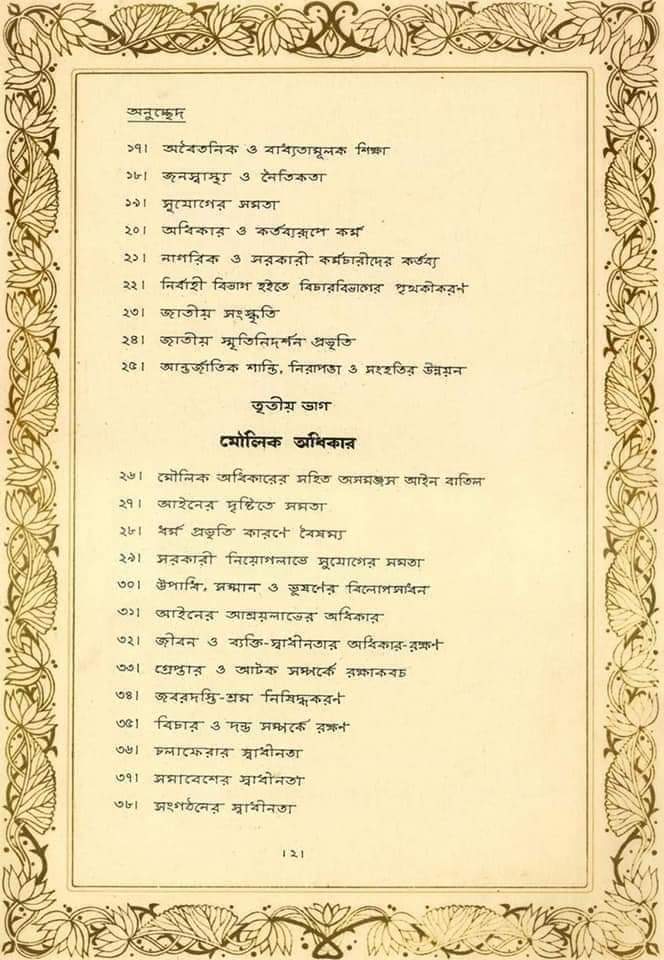 অনুচ্ছেদ
১৭। অবৈতনিক ও বাধ্যতামূলক শিক্ষা
১৮। জনস্বাস্থ্য ও নৈতিকতা
১৯। সুযোগের সমতা
২০। অধিকার ও কর্তব্যরূপে কর্ম
২১। নাগরিক ও সরকারী কর্মচারীদের কর্তব্য
২২। নির্বাহী বিভাগ হইতে বিচারবিভাগের পৃথকীকরণ
২৩। জাতীয় সংস্কৃতি
২৪। জাতীয় স্মৃতিনিদর্শন প্রভৃতি
২৫। আন্তর্জাতিক শান্তি, নিরাপত্তা ও সংহতির উন্নয়ন
তৃতীয় ভাগ
মৌলিক অধিকার
২৬। মৌলিক অধিকারের সহিত অসমঞ্জস আইন বাতিল
২৭। আইনের দৃষ্টিতে সমতা
২৮। ধর্ম প্রভৃতি কারণে বৈষম্য
২৯। সরকারী নিয়োগলাভে সুযোগের সমতা
৩০। উপাধি, সম্মান ও ভূষণের বিলোপসাধন
৩১। আইনের আশ্রয়লাভের অধিকার
৩২। জীবন ও ব্যক্তি-স্বাধীনতার অধিকার-রক্ষণ
৩৩। গ্রেপ্তার ও আটক সম্পর্কে রক্ষাকবচ
৩৪। জবরদস্তি-শ্রম নিষিদ্ধকরণ
৩৫। বিচার ও দন্ড সম্পর্কে রক্ষণ
৩৬। চলাফেরার স্বাধীনতা
৩৭। সমাবেশের স্বাধীনতা
৩৮। সংগঠনের স্বাধীনতা
।২।